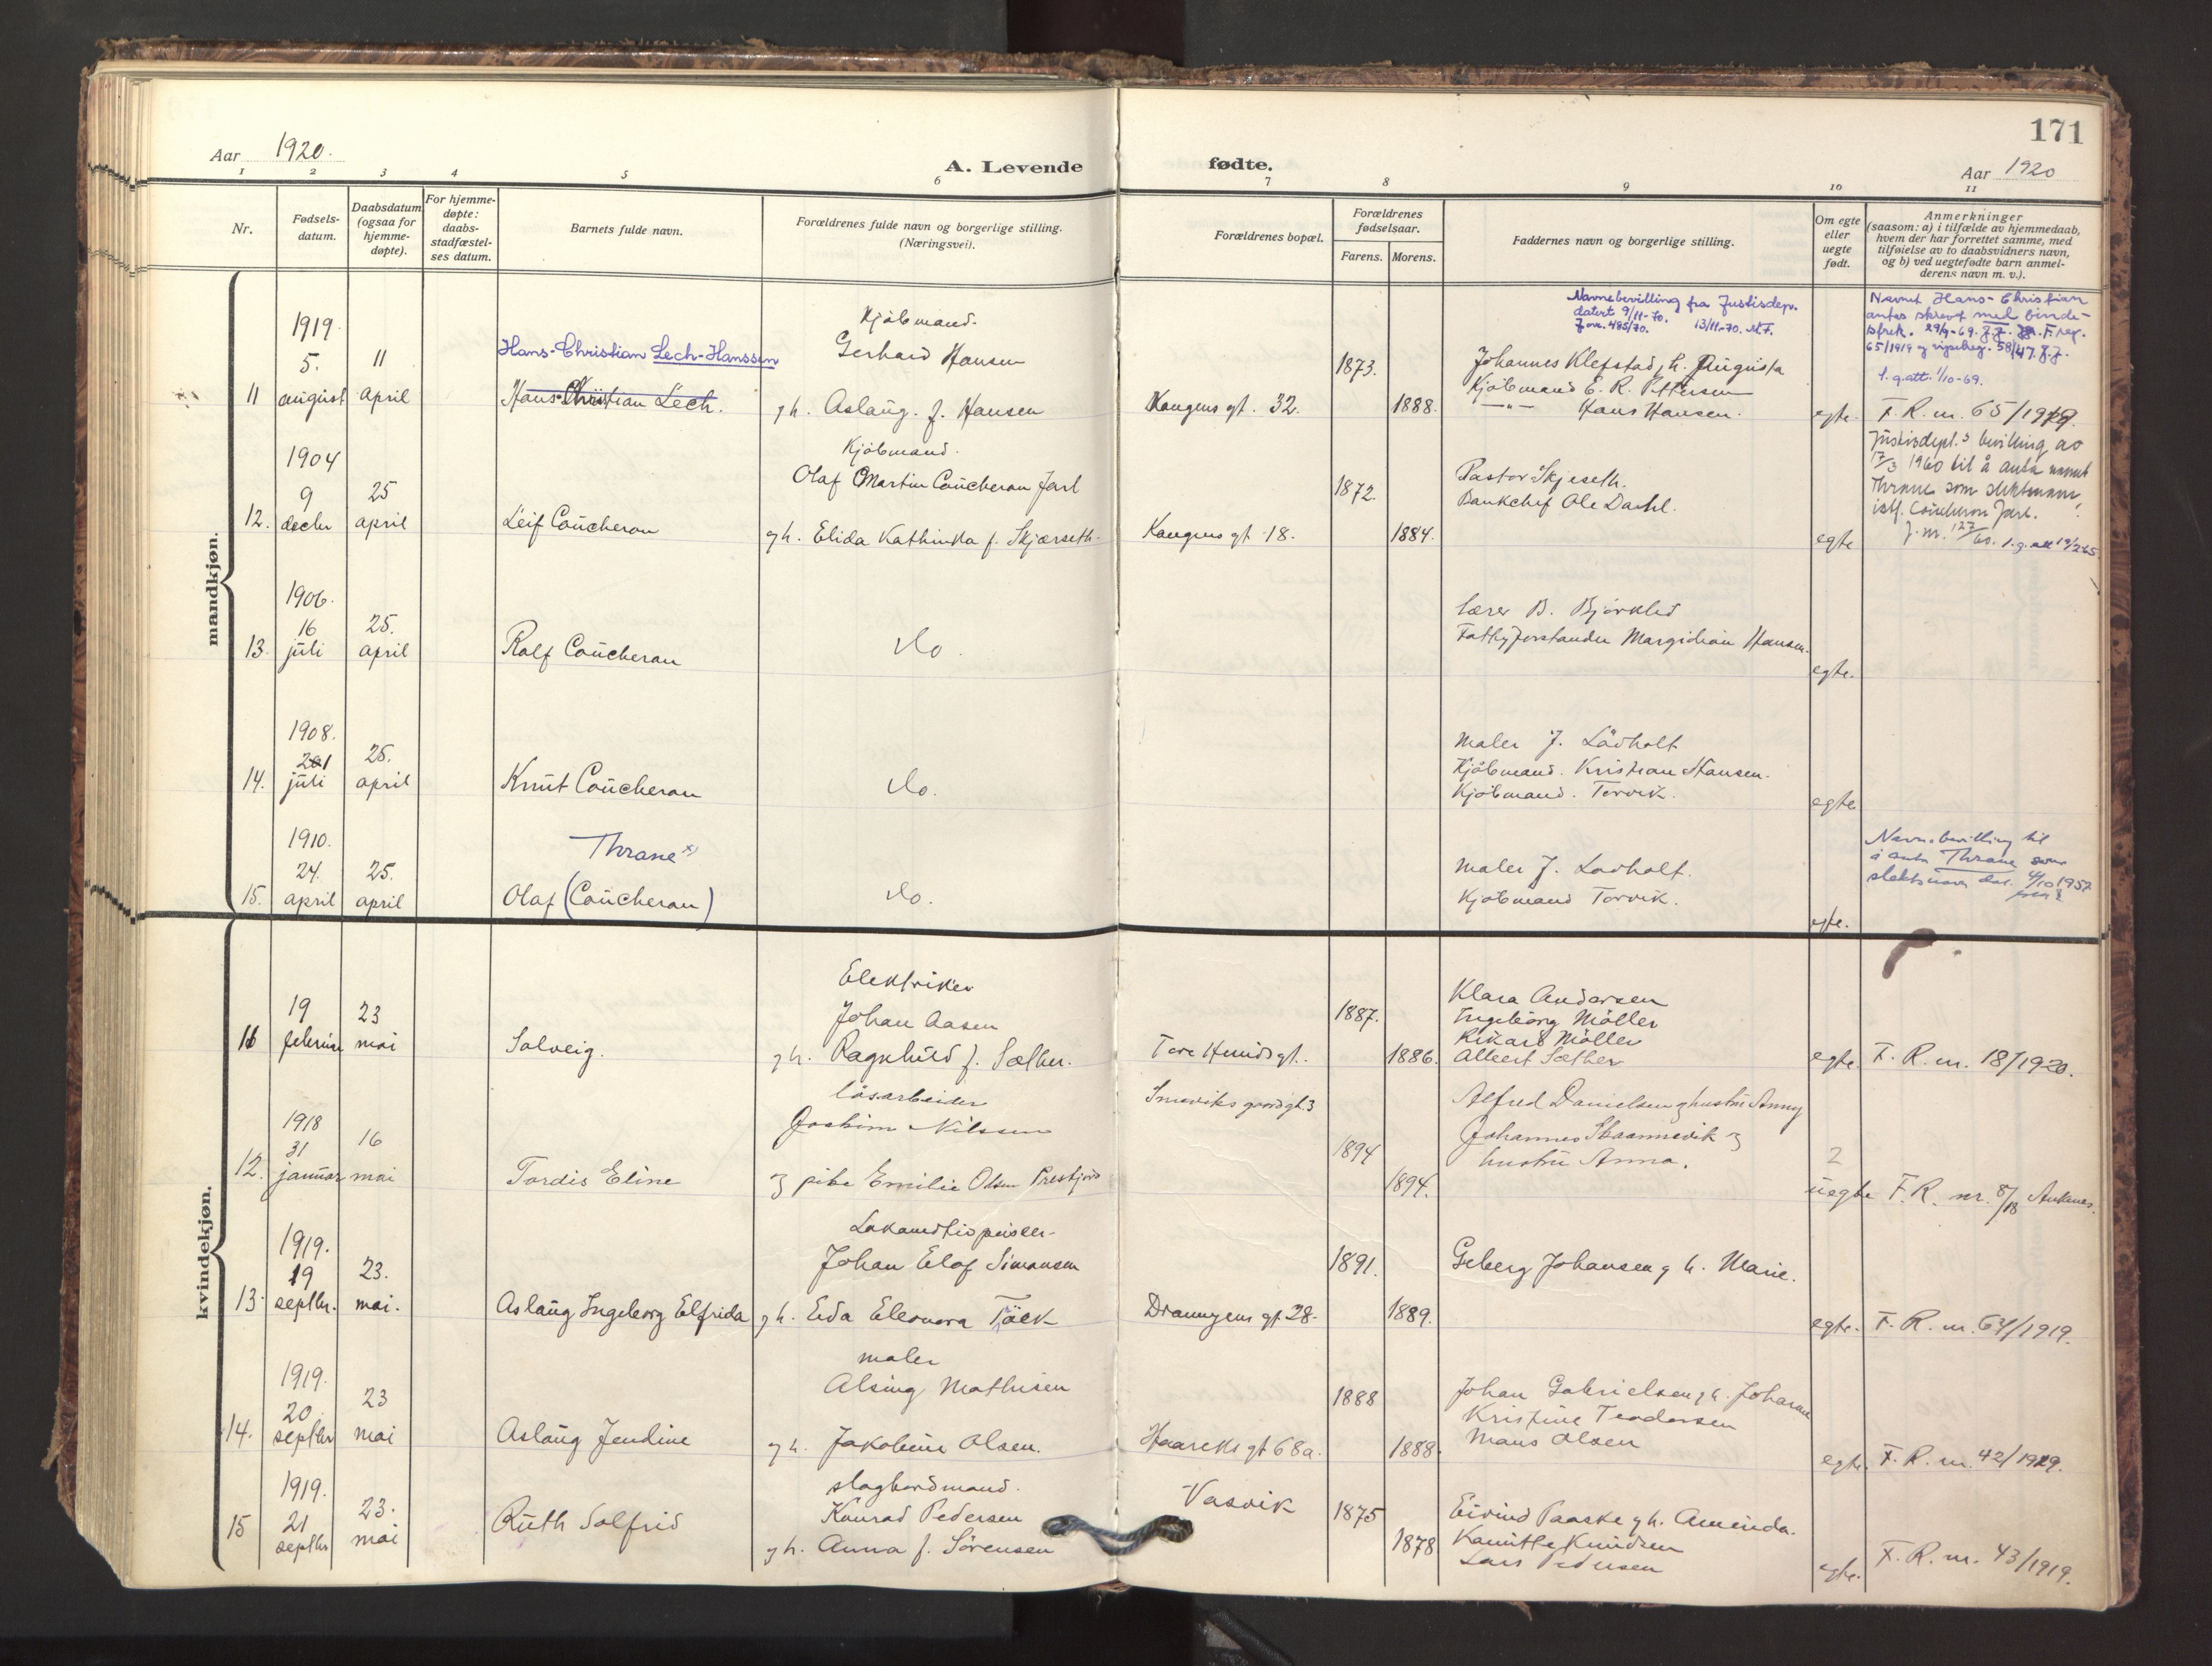 171
Aar 1920.
A. Levende fødte.
Aar 1920
1 2 3 4 5 6 7 8 9 10 11
Nr.
Fødsels-
datum.
Daabsdatum
(ogsaa for
hjemme-
døpte).
For hjemme-
døpte:
daabs-
stadfæstel-
ses datum.
Barnets fulde navn.
Forældrenes fulde navn og borgerlige stilling.
(Næringsvei).
Forældrenes bopæl.
Forældrenes
fødselsaar.
Farens. Morens.
Faddernes navn og borgerlige stilling.
Om egte
eller
uegte
født.
Anmerkninger
(saasom: a) i tilfælde av hjemmedaab,
hvem der har forrettet samme, med
tilføielse av to daabsvidners navn,
og b) ved uegtefødte barn anmel-
derens navn m. v.).
mandkjøn.
11
1919.
5.
august
11
april
Hans-Christian Lech-Hanssen
Hans Christian Lech.
Kjöbmand.
Gerhard Hansen
g h. Aslaug. f. Hansen
Kongens gt. 32.
1873.
1888.
Navnebevilling fra Justisdep.
datert 9/11-70.
J.nr. 485/70. 13/11-70.
Johannes Klefstad g h. Augusta
Kjöbmand E. R. Pettersen
—"— Hans Hansen.
egte.
Navnet Hans-Christian
antas skrevet med binde-
strek. 29/9-69. F.reg.
65/1919
l. g. att. 1/10-69.
F. R. nr. 65/1919.
12.
1904
9
decbr
25
april
Leif Coucheron
Kjöbmand.
Olaf Martin Coucheron Jarl
g h. Elida Kathinka f. Skjærseth.
Kongens gt. 18.
1872.
1884.
Pastor Skjeseth.
Bankchef Ole Dahl.
egte
Justisdept.s bevilling av
17/3 1960 til å anta navnet
Thrane som slektsnavn,
istf. Coucheron Jarl.
J. nr. 127/60. l. g. att 19/265
13.
1906.
16
juli
25.
april
Rolf Coucheron
do.
lærer B. Björklid
Fattigforstander Margido Hansen.
egte.
14.
1908.
21
juli
25.
april
Knut Coucheron
do.
maler J. Lövholt
Kjöbmand. Kristian Hansen.
Kjöbmand. Torvik.
egte
15.
1910.
24.
april
25.
april
Thrane x)
Olaf (Coucheron)
do.
maler J. Lovholt.
Kjöbmand Torvik.
egte.
Navnebevilling til
å anta Thrane som
slektsnavn dat. 4/10 1957
kvindekjøn.
11
19
februar
23
mai
Solveig.
Elektriker
Johan Aasen
g h. Ragnhild f. Sæther.
Tore Hundsgt.
1887.
1886.
Klara Andersen
Ingeborg Möller
Rikard Möller
Albert Sæther
egte.
F. R. nr. 18/1920.
12.
1918
31
januar
16
mai
Tordis Eline
lösarbeider
Joakim Nilssen
g pike Emilie Olsen Prestjord
Sneviks gaardgt. 3
1894
1894.
Alfred Danielsen g hustru Anny
Johannes Skaannevik g
hustru Anna.
2
uegte
F. R. nr. 8/18 Ankenes.
13.
1919.
19
septbr.
23.
mai.
Aslaug Ingeborg Elfrida
Lokomotivpusser
Johan Elof Simonsen
g h. Eda Eleonora Töck
Dronngens gt. 28.
1891.
1889.
Geberg Johansen g h. Marie.
egte.
F. R. nr. 64/1919.
14.
1919.
20.
septbr
23
mai
Aslaug Jendine
maler
Alsing Mathisen
g h. Jakobine Olsen.
Haareks gt 68a.
1888
1888.
Johan Gabrielsen g h. Johanne
Kristine Teodorsen
Mons Olsen
egte.
F. R. nr. 42/1919.
15
1919.
21
septbr
23.
mai
Ruth Solfrid
slagbordmand.
Konrad Pedersen
g h. Anna f. Sörensen
Vasvik
1875
1878
Eivind Paaske g h. Amenda.
Kamitte Knudsen
Lars Pedersen
egte.
F. R. nr. 43/1919.